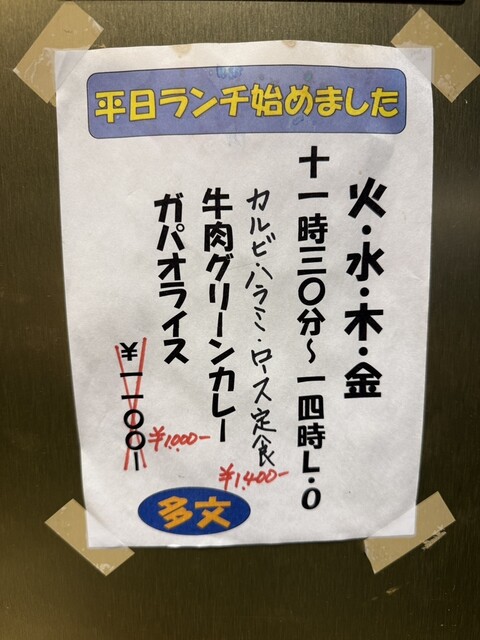 平日ランチ始めました
火・水・木・金
十一時三〇分～一四時L.O
カルビ・ハラミ・ロース定食
¥1,400-
牛肉グリーンカレー
ガパオライス
¥一一〇〇-
¥1,000-
多文